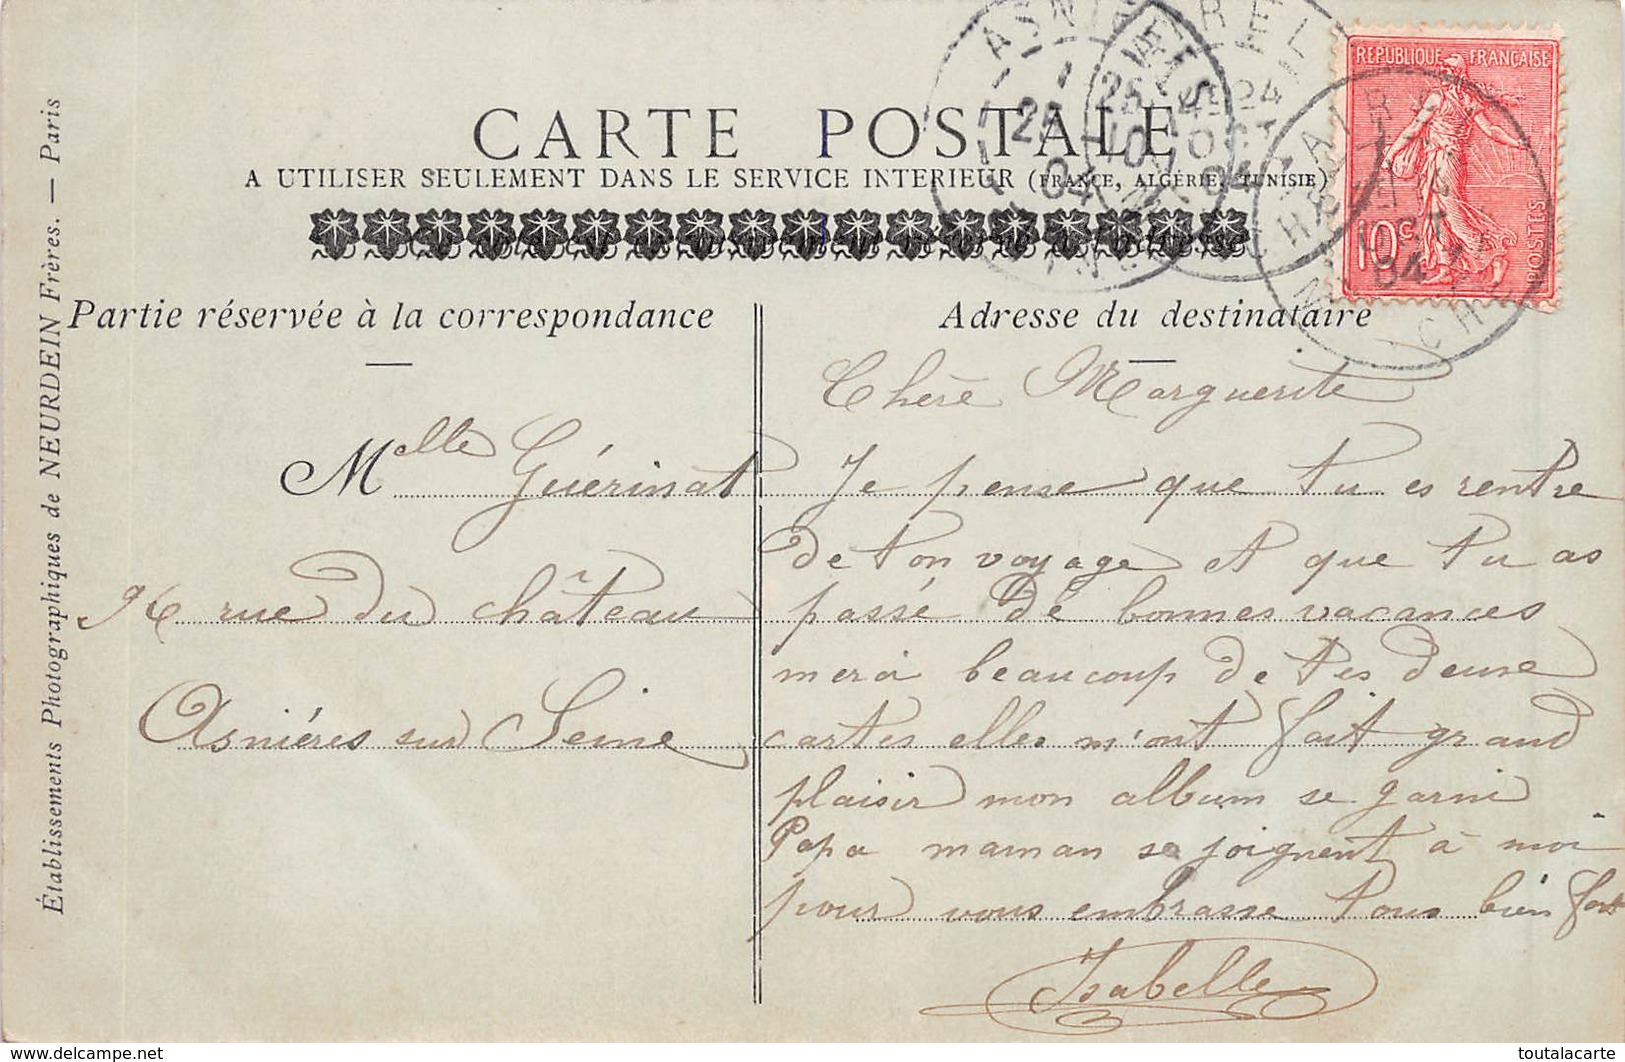 CARTE POSTALE
A UTILISER SEULEMENT DANS LE SERVICE INTERIEUR (FRANCE, ALGÉRIE, TUNISIE)
REPUBLIQUE FRANÇAISE
10c
POSTES
ASNIERES
25
10
04
24
OCT
04
Partie réservée à la correspondance
Adresse du destinataire
Établissements Photographiques de NEURDEIN Frères. — Paris
Melle Guérinat
rue du château
Asniéres sur Seine
Chère Marguerite
Je pense que tu es rentre
de ton voyage et que tu as
passé de bonnes vacances
merci beaucoup de tes deux
cartes elles m'ont fait grand
plaisir mon album se garni
Papa maman se joignent à moi
pour vous embrasse tous bien fort
Isabelle
www.delcampe.net
toutalacarte